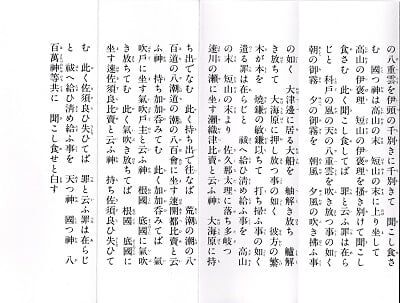 の八重雲を伊頭の千別きに千別きて 聞こし食さ
む 國つ神は高山の末 短山の末に上り坐して
高山の伊褒理 短山の伊褒理を掻き別けて聞こし
食さむ 此く聞こし食してば 罪と云ふ罪は在ら
じと 科戸の風の天の八重雲を吹き放つ事の如く
朝の御霧 夕の御霧を 朝風 夕風の吹き拂ふ事
の如く 大津邊に居る大船を 舳解き放ち 艫解
き放ちて 大海原に押し放つ事の如く 彼方の繁
木が本を 燒鎌の敏鎌以ちて 打ち掃ふ事の如く
遺る罪は在らじと 祓へ給ひ淸め給ふ事を 高山
の末 短山の末より 佐久那太理に落ち多岐つ
速川の瀬に坐す瀬織津比賣と云ふ神 大海原に持
ち出でなむ 此く持ち出で往なば 荒潮の潮の八
百道の八潮道の潮の八百會に坐す速開都比賣と云
ふ神 持ち加加呑みてむ 此く加加呑みてば 氣
吹戸に坐す氣吹戸主と云ふ神 根國 底國に氣吹
き放ちてむ 此く氣吹き放ちてば 根國 底國に
坐す速佐須良比賣と云ふ神 持ち佐須良ひ失ひて
む 此く佐須良ひ失ひてば 罪と云ふ罪は在らじ
と 祓へ給ひ淸め給ふ事を 天つ神 國つ神 八
百萬神等共に 聞こし食せと白す